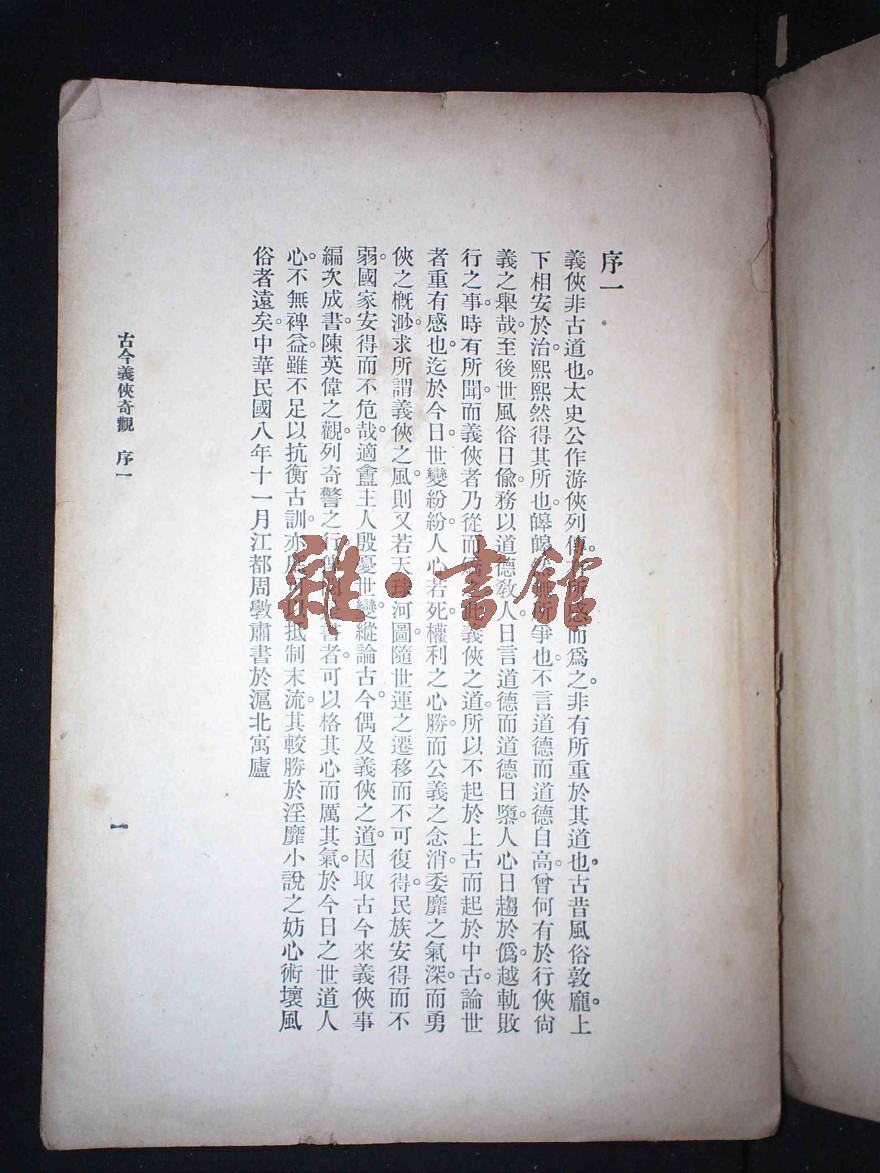 序一
義俠非古道也。太史公作游俠列傳。有所感而爲之。非有所重於其道也。古昔風俗敦龐。上
下相安於治。熙熙然得其所也。皡皡然無所爭也。不言道德而道德自高。曾何有於行俠尙
義之舉哉。至後世風俗日偸。務以道德敎人。日言道德而道德日隳。人心日趨於僞。越軌敗
行之事。時有所聞。而義俠者乃從而矯之。義俠之道。所以不起於上古而起於中古。論世
者重有感也。迄於今日。世變紛紛。人心若死。權利之心勝。而公義之念消。委靡之氣深。而勇
俠之槪渺。求所謂義俠之風。則又若天球河圖。隨世運之遷移而不可復得。民族安得而不
弱。國家安得而不危哉。適盦主人殷憂世變。縱論古今。偶及義俠之道。因取古今來義俠事
編次成書。陳英偉之觀。列奇警之行。書者。可以格其心而厲其氣。於今日之世道人
心。不無裨益。雖不足以抗衡古訓。亦抵制末流。其較勝於淫靡小說之妨心術壞風
俗者遠矣。中華民國八年十一月江都周斅肅書於滬北寓廬
古今義俠奇觀 序一
一
雜·書館